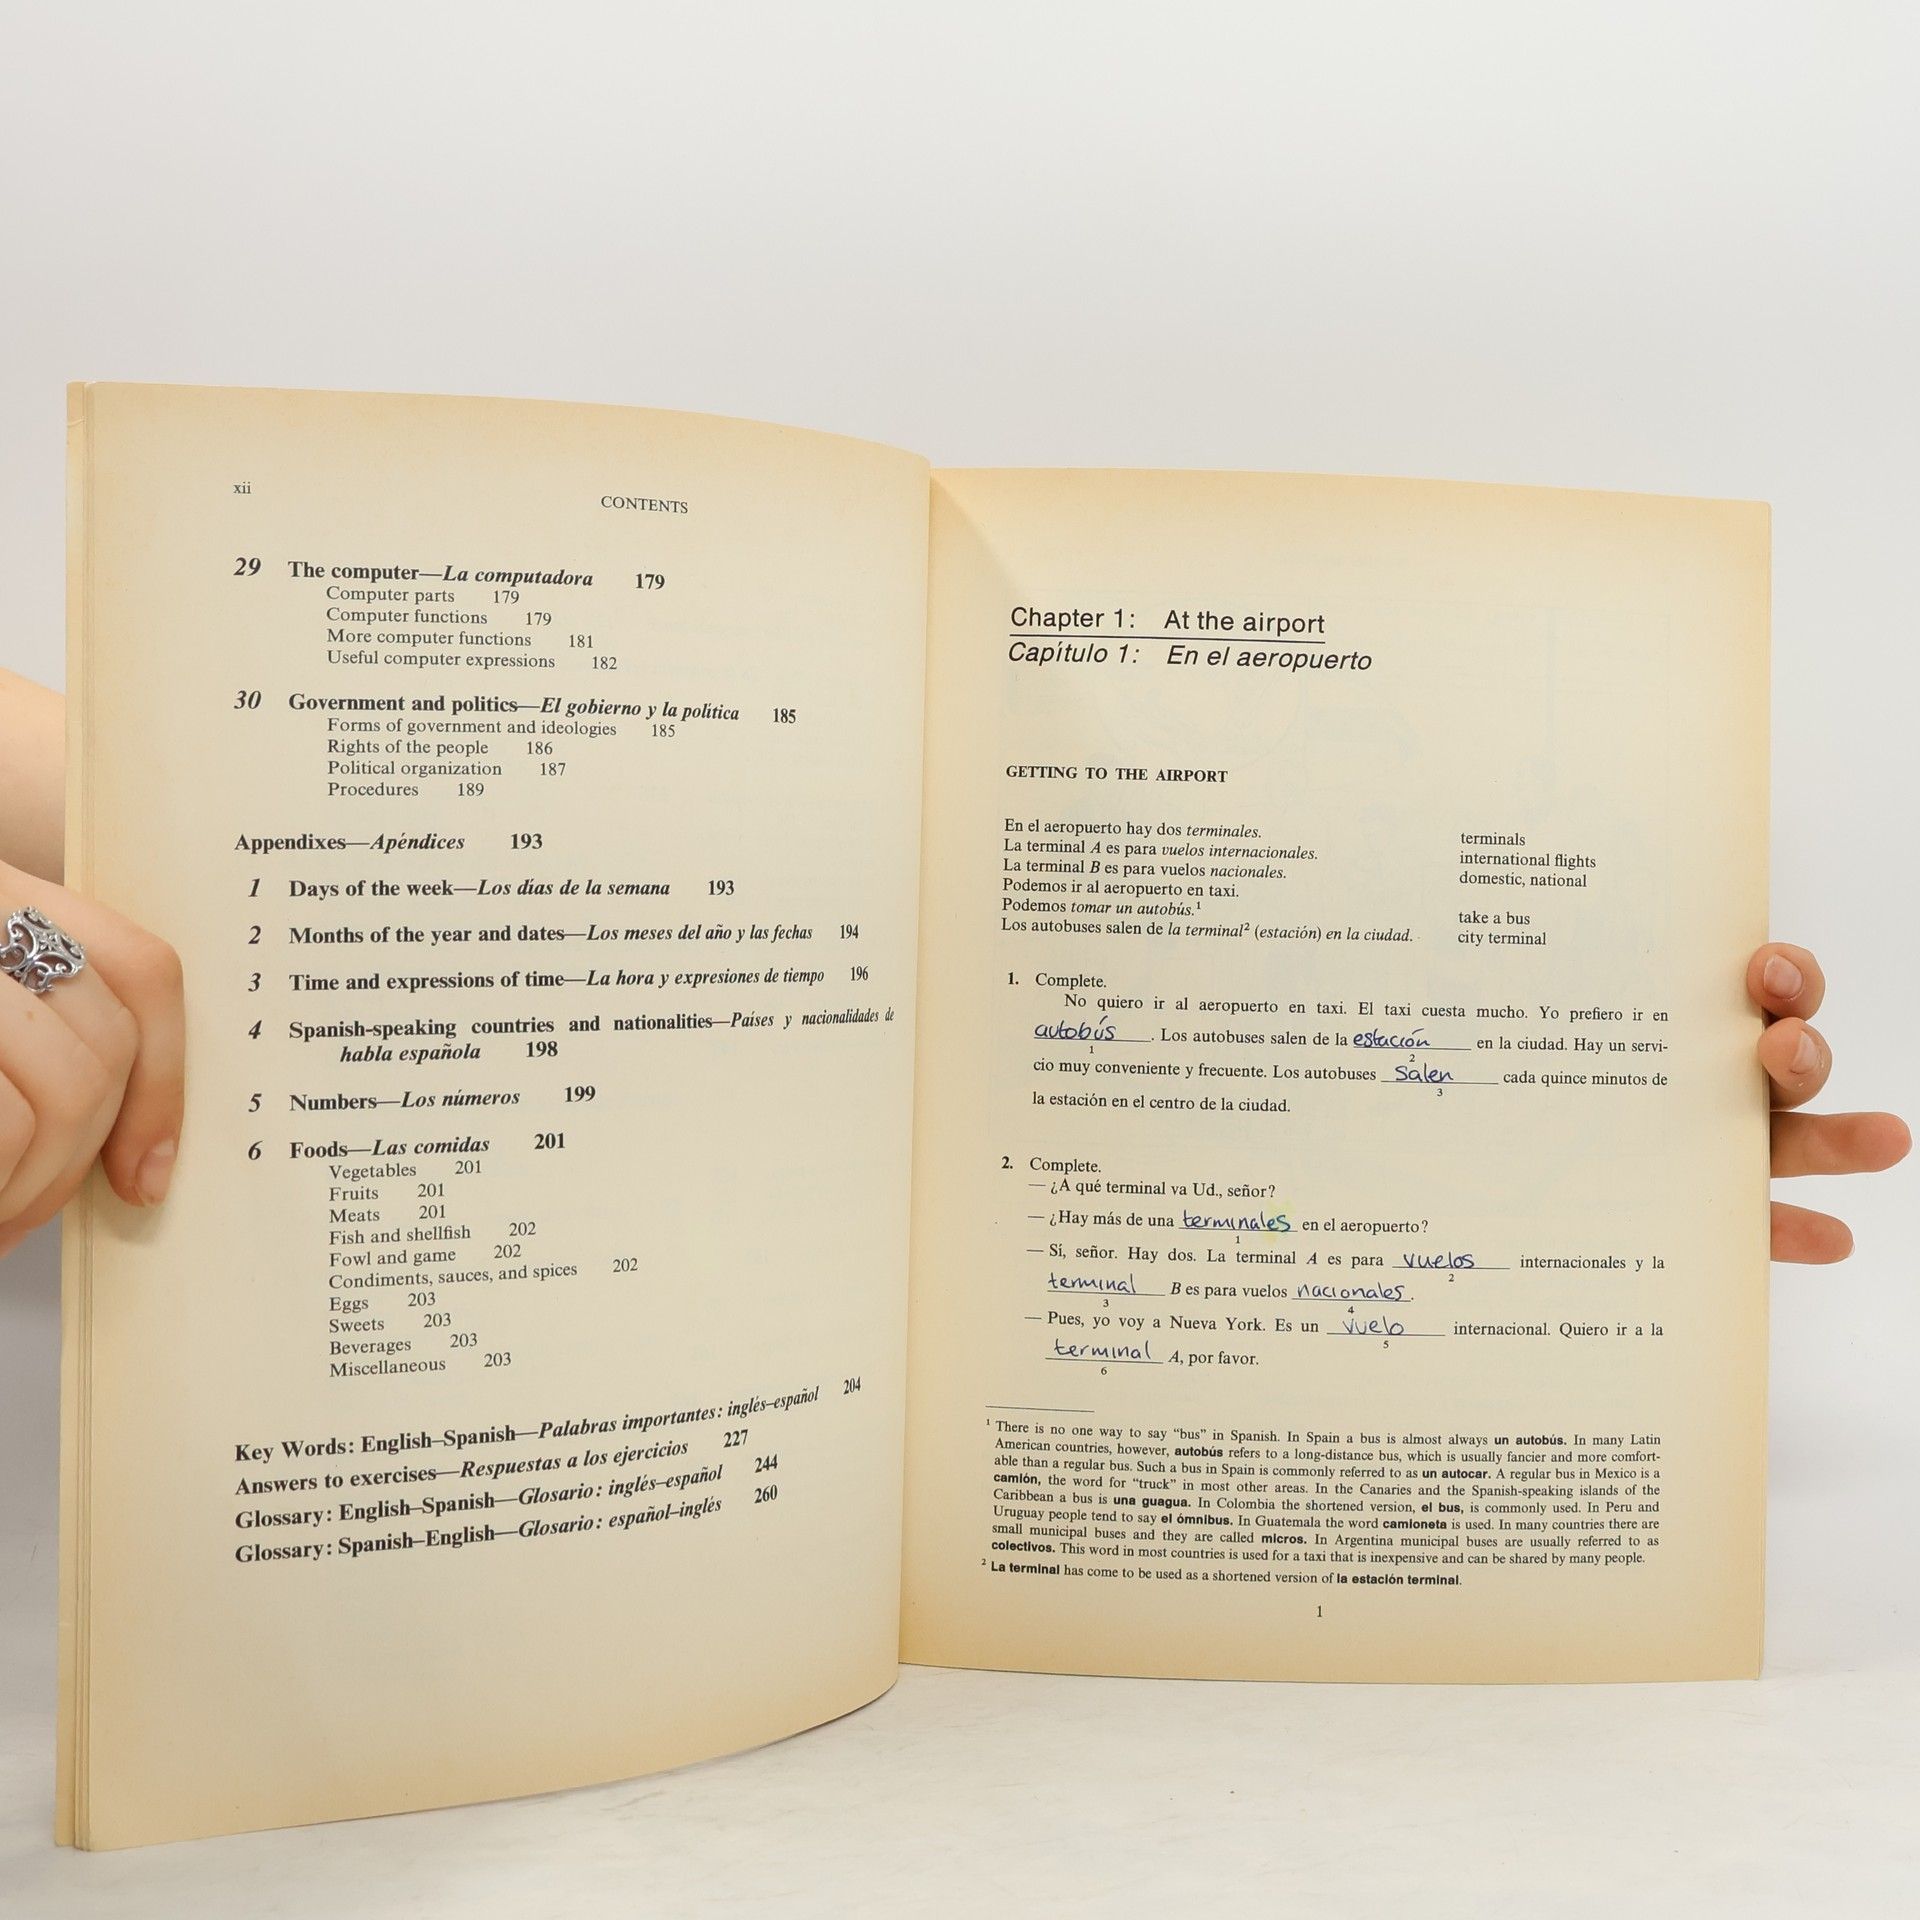 xii
CONTENTS
29 The computer—La computadora 179
Computer parts 179
Computer functions 179
More computer functions 181
Useful computer expressions 182
30 Government and politics—El gobierno y la política 185
Forms of government and ideologies 185
Rights of the people 186
Political organization 187
Procedures 189
Appendixes—Apéndices 193
1 Days of the week—Los días de la semana 193
2 Months of the year and dates—Los meses del año y las fechas 194
3 Time and expressions of time—La hora y expresiones de tiempo 196
4 Spanish-speaking countries and nationalities—Países y nacionalidades de
habla española 198
5 Numbers—Los números 199
6 Foods—Las comidas 201
Vegetables 201
Fruits 201
Meats 201
Fish and shellfish 202
Fowl and game 202
Condiments, sauces, and spices 202
Eggs 203
Sweets 203
Beverages 203
Miscellaneous 203
Key Words: English–Spanish—Palabras importantes: inglés–español 204
Answers to exercises—Respuestas a los ejercicios 227
Glossary: English–Spanish—Glosario: inglés–español 244
Glossary: Spanish–English—Glosario: español–inglés 260
Chapter 1: At the airport
Capítulo 1: En el aeropuerto
GETTING TO THE AIRPORT
En el aeropuerto hay dos terminales. terminals
La terminal A es para vuelos internacionales. international flights
La terminal B es para vuelos nacionales. domestic, national
Podemos ir al aeropuerto en taxi.
Podemos tomar un autobús.1 take a bus
Los autobuses salen de la terminal2 (estación) en la ciudad. city terminal
1. Complete.
No quiero ir al aeropuerto en taxi. El taxi cuesta mucho. Yo prefiero ir en
autobús. Los autobuses salen de la estación en la ciudad. Hay un servi-
1 2
cio muy conveniente y frecuente. Los autobuses salen cada quince minutos de
3
la estación en el centro de la ciudad.
2. Complete.
— ¿A qué terminal va Ud., señor?
— ¿Hay más de una terminales en el aeropuerto?
1
— Sí, señor. Hay dos. La terminal A es para vuelos internacionales y la
2
terminal B es para vuelos nacionales.
3 4
— Pues, yo voy a Nueva York. Es un vuelo internacional. Quiero ir a la
5
terminal A, por favor.
6
1 There is no one way to say “bus” in Spanish. In Spain a bus is almost always un autobús. In many Latin
American countries, however, autobús refers to a long-distance bus, which is usually fancier and more comfort-
able than a regular bus. Such a bus in Spain is commonly referred to as un autocar. A regular bus in Mexico is a
camión, the word for “truck” in most other areas. In the Canaries and the Spanish-speaking islands of the
Caribbean a bus is una guagua. In Colombia the shortened version, el bus, is commonly used. In Peru and
Uruguay people tend to say el ómnibus. In Guatemala the word camioneta is used. In many countries there are
small municipal buses and they are called micros. In Argentina municipal buses are usually referred to as
colectivos. This word in most countries is used for a taxi that is inexpensive and can be shared by many people.
2 La terminal has come to be used as a shortened version of la estación terminal.
1